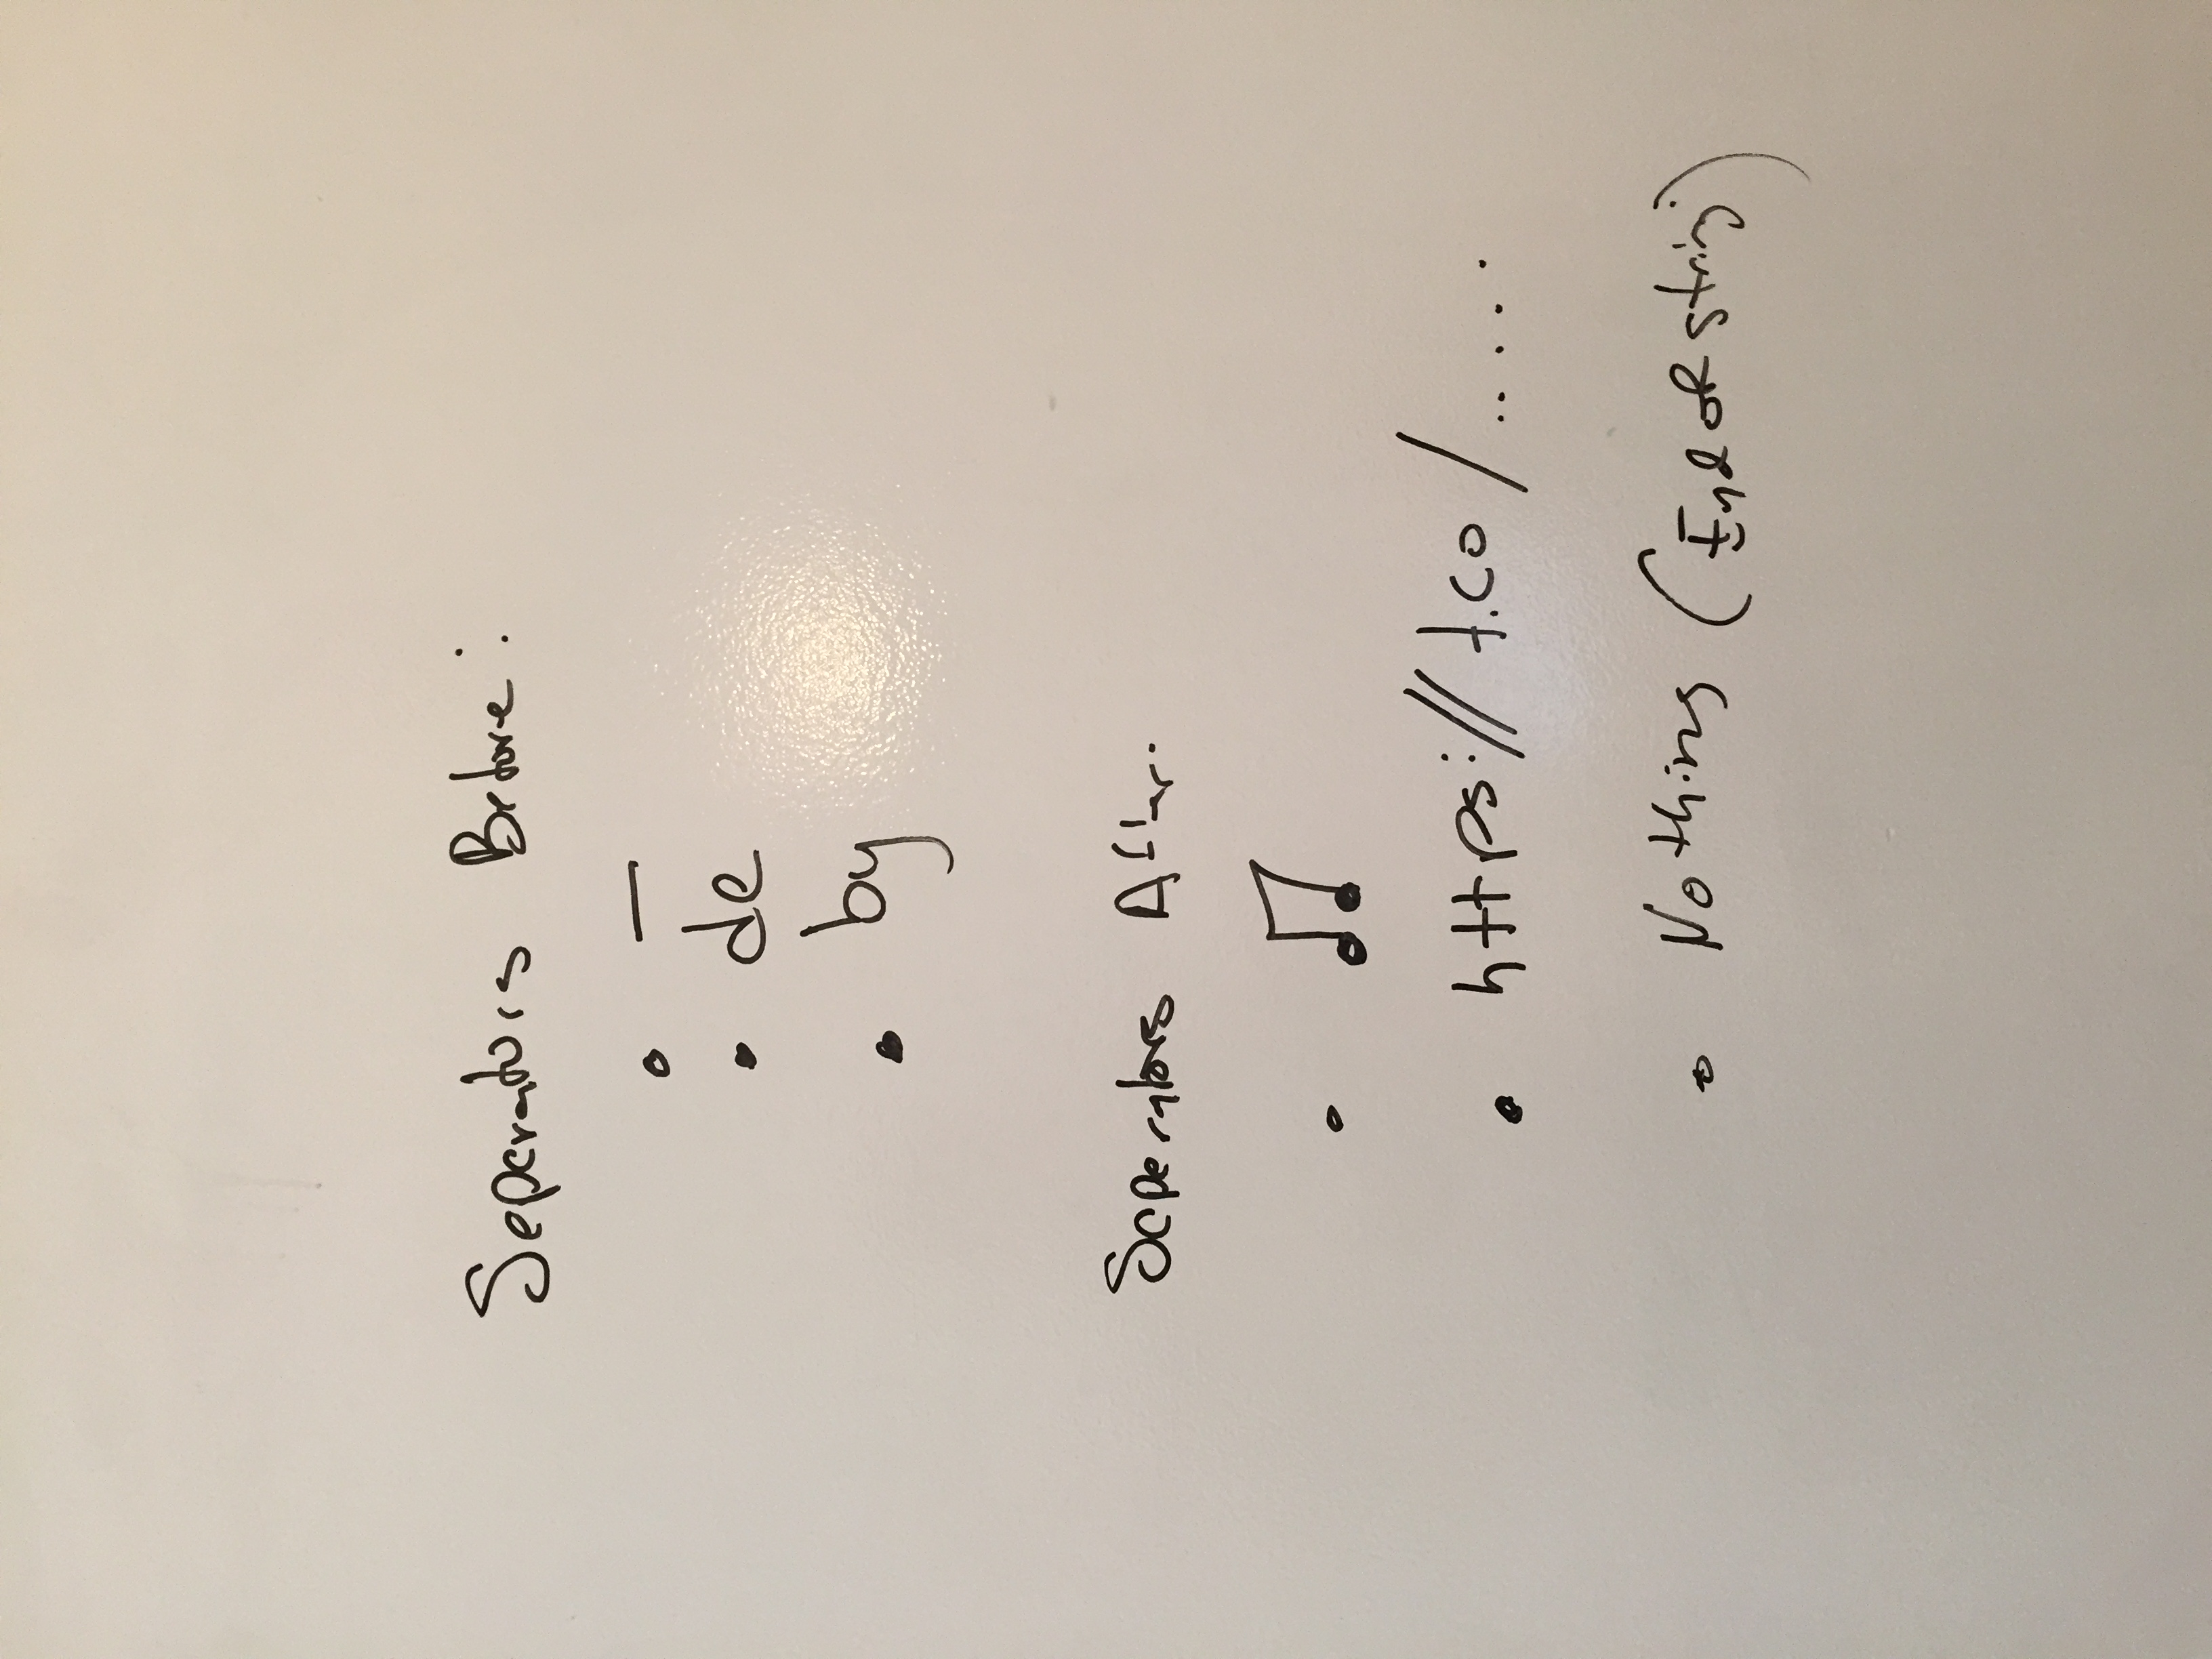 Seperators Before:
• —
• de
• by
Seperators After.
• ♫
• https://t.co/.....
• Nothing (End of string)